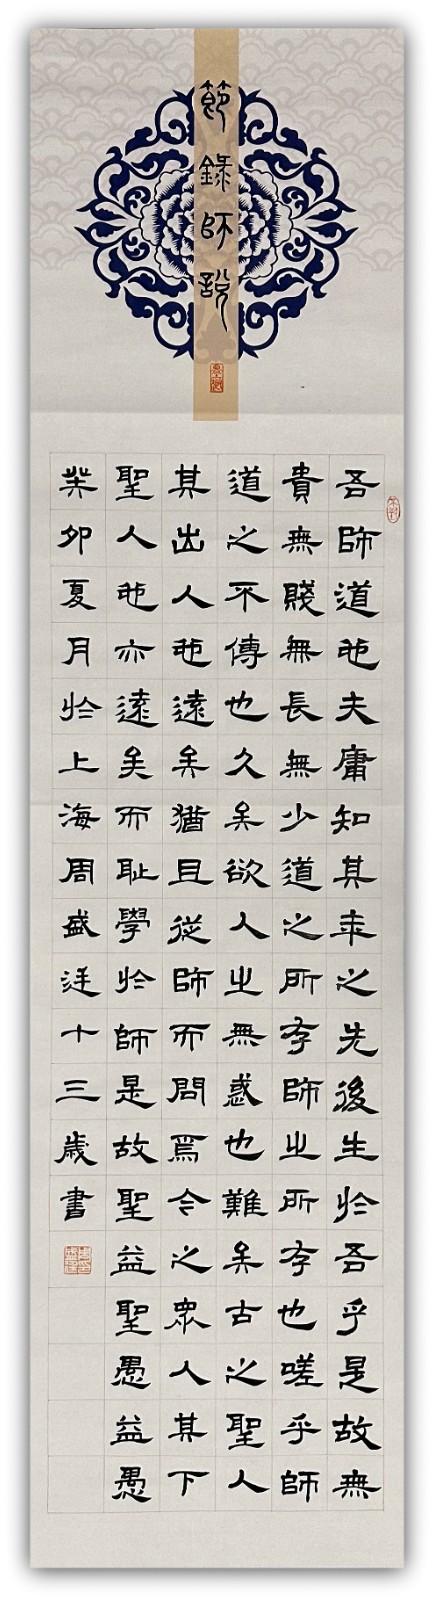 節錄師說
吾師道也夫庸知其年之先後生於吾乎是故無
貴無賤無長無少道之所存師之所存也嗟乎師
道之不傳也久矣欲人之無惑也難矣古之聖人
其出人也遠矣猶且從師而問焉今之衆人其下
聖人也亦遠矣而耻學於師是故聖益聖愚益愚
癸卯夏月於上海周盛廷十三歲書